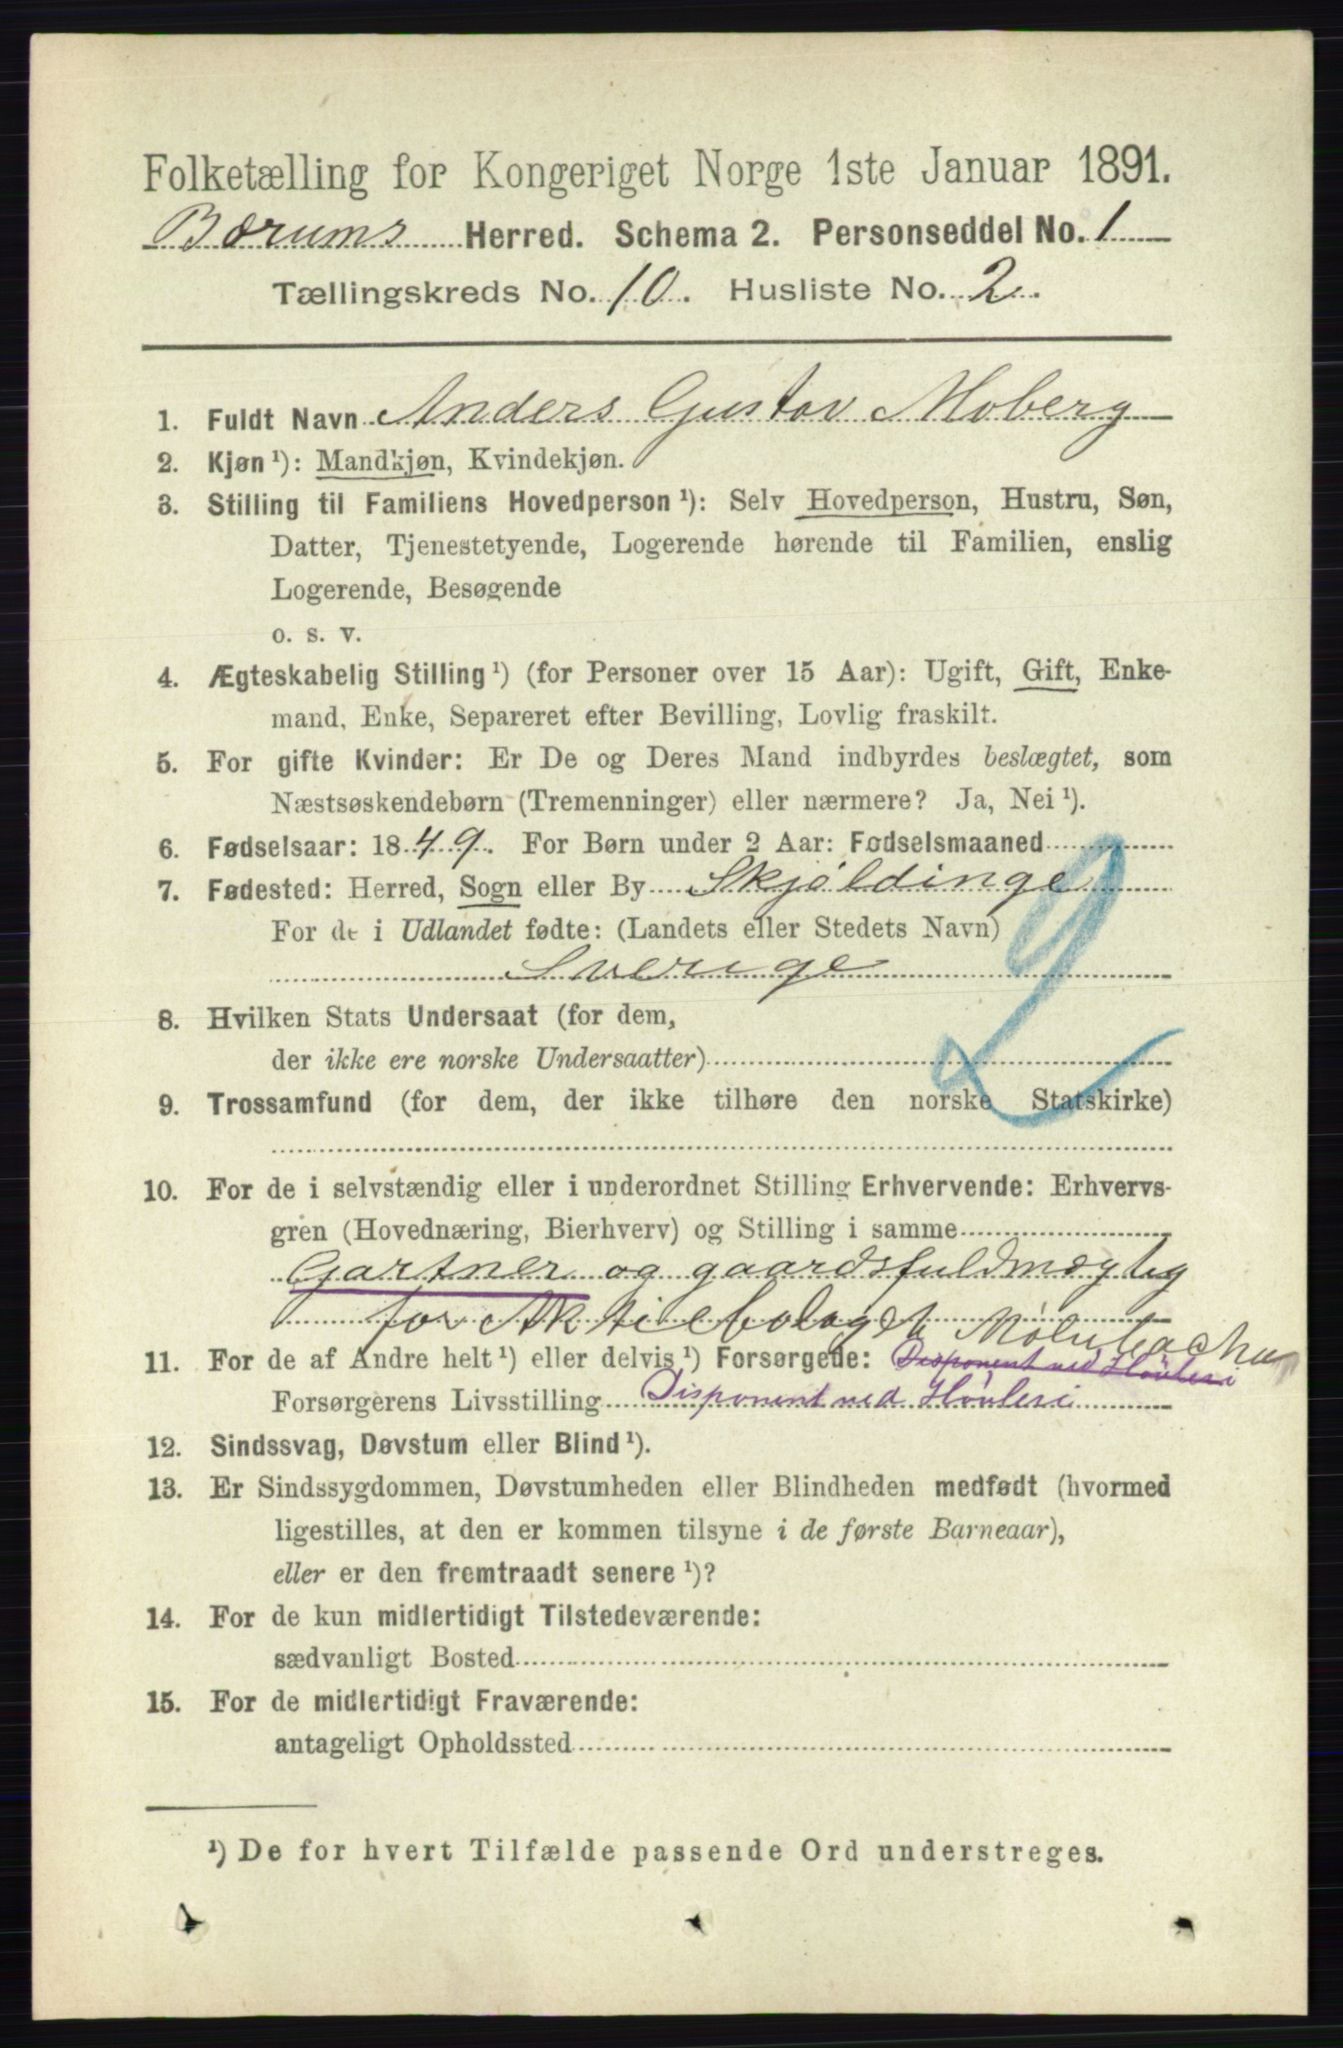 Folketælling for Kongeriget Norge 1ste Januar 1891.
Bærums Herred. Schema 2. Personseddel No. 1
Tællingskreds No. 10. Husliste No. 2.
1. Fuldt Navn Anders Gustav Moberg
2. Kjøn ¹): Mandkjøn, Kvindekjøn.
3. Stilling til Familiens Hovedperson ¹): Selv Hovedperson, Hustru, Søn,
Datter, Tjenestetyende, Logerende hørende til Familien, enslig
Logerende, Besøgende
o. s. v.
4. Ægteskabelig Stilling ¹) (for Personer over 15 Aar): Ugift, Gift, Enke-
mand, Enke, Separeret efter Bevilling, Lovlig fraskilt.
5. For gifte Kvinder: Er De og Deres Mand indbyrdes beslægtet, som
Næstsøskendebørn (Tremenninger) eller nærmere? Ja, Nei ¹).
6. Fødselsaar: 1849. For Børn under 2 Aar: Fødselsmaaned
7. Fødested: Herred, Sogn eller By Skjöldinge
For de i Udlandet fødte: (Landets eller Stedets Navn)
Sverige
8. Hvilken Stats Undersaat (for dem,
der ikke ere norske Undersaatter)
9. Trossamfund (for dem, der ikke tilhøre den norske Statskirke)
10. For de i selvstændig eller i underordnet Stilling Erhvervende: Erhvervs-
gren (Hovednæring, Bierhverv) og Stilling i samme
Gartner og gaardsfuldmægtig
for Aktiebolaget
11. For de af Andre helt ¹) eller delvis ¹) Forsørgede: Disponent ved Høvleri
Forsørgerens Livsstilling Disponent ved Høvleri
12. Sindssvag, Døvstum eller Blind ¹).
13. Er Sindssygdommen, Døvstumheden eller Blindheden medfødt (hvormed
ligestilles, at den er kommen tilsyne i de første Barneaar),
eller er den fremtraadt senere ¹)?
14. For de kun midlertidigt Tilstedeværende:
sædvanligt Bosted
15. For de midlertidigt Fraværende:
antageligt Opholdssted
¹) De for hvert Tilfælde passende Ord understreges.